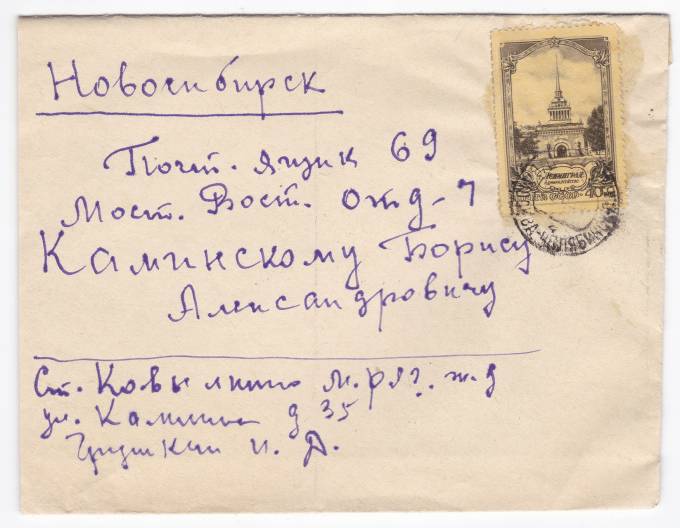 Новосибирск
Почт. ящик 69
Мост. Вост. отд-7
Каминскому Борису
Александровичу
Ст. Ковылкино ж.д
ул. Калинина д 35
И. Д.
ЛЕНИНГРАД
АДМИРАЛТЕЙСТВО
40
МОСКВА-ЧЕЛЯБИНСК